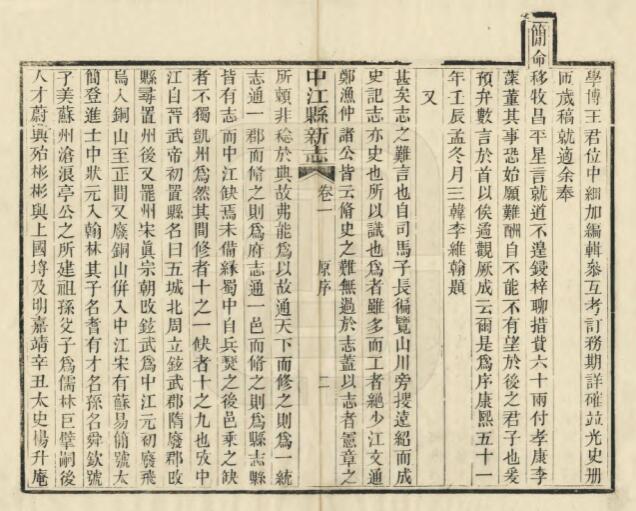 學博王君位中細加編輯叅互考訂務期詳確竝光史册
匝歲稿就適余奉
簡命
移牧昌平星言就道不遑鋟梓聊措費六十兩付孝康李
葆董其事恐始願難酬自不能不有望於後之君子也爰
預弁數言於首以俟通觀厥成云爾是爲序康熙五十一
年壬辰孟冬月三韓李維翰題
又
甚矣志之難言也自司馬子長徧覽山川旁搜遠紹而成
史記志亦史也所以識也爲者雖多而工者絕少江文通
鄭漁仲諸公皆云脩史之難無過於志蓋以志者憲章之
中江縣新志 卷一 原序 二
所賴非稔於典故弗能爲以故通天下而修之則爲一統
志通一郡而脩之則爲府志通一邑而脩之則爲縣志縣
皆有志而中江缺焉未備緣蜀中自兵燹之後邑乘之缺
者不獨凱州爲然其間修者十之一缺者十之九也攷中
江自晉武帝初置縣名曰五城北周立鉉武郡隋廢郡改
縣尋置州後又罷州宋眞宗朝改鉉武爲中江元初廢飛
烏入銅山至正間又廢銅山併入中江宋有蘇易簡號太
簡登進士中狀元入翰林其子名耆有才名孫名舜欽號
子美蘇州滄浪亭公之所建祖孫父子爲儒林巨擘嗣後
人才蔚興殆彬彬與上國埒及明嘉靖辛丑太史楊升庵